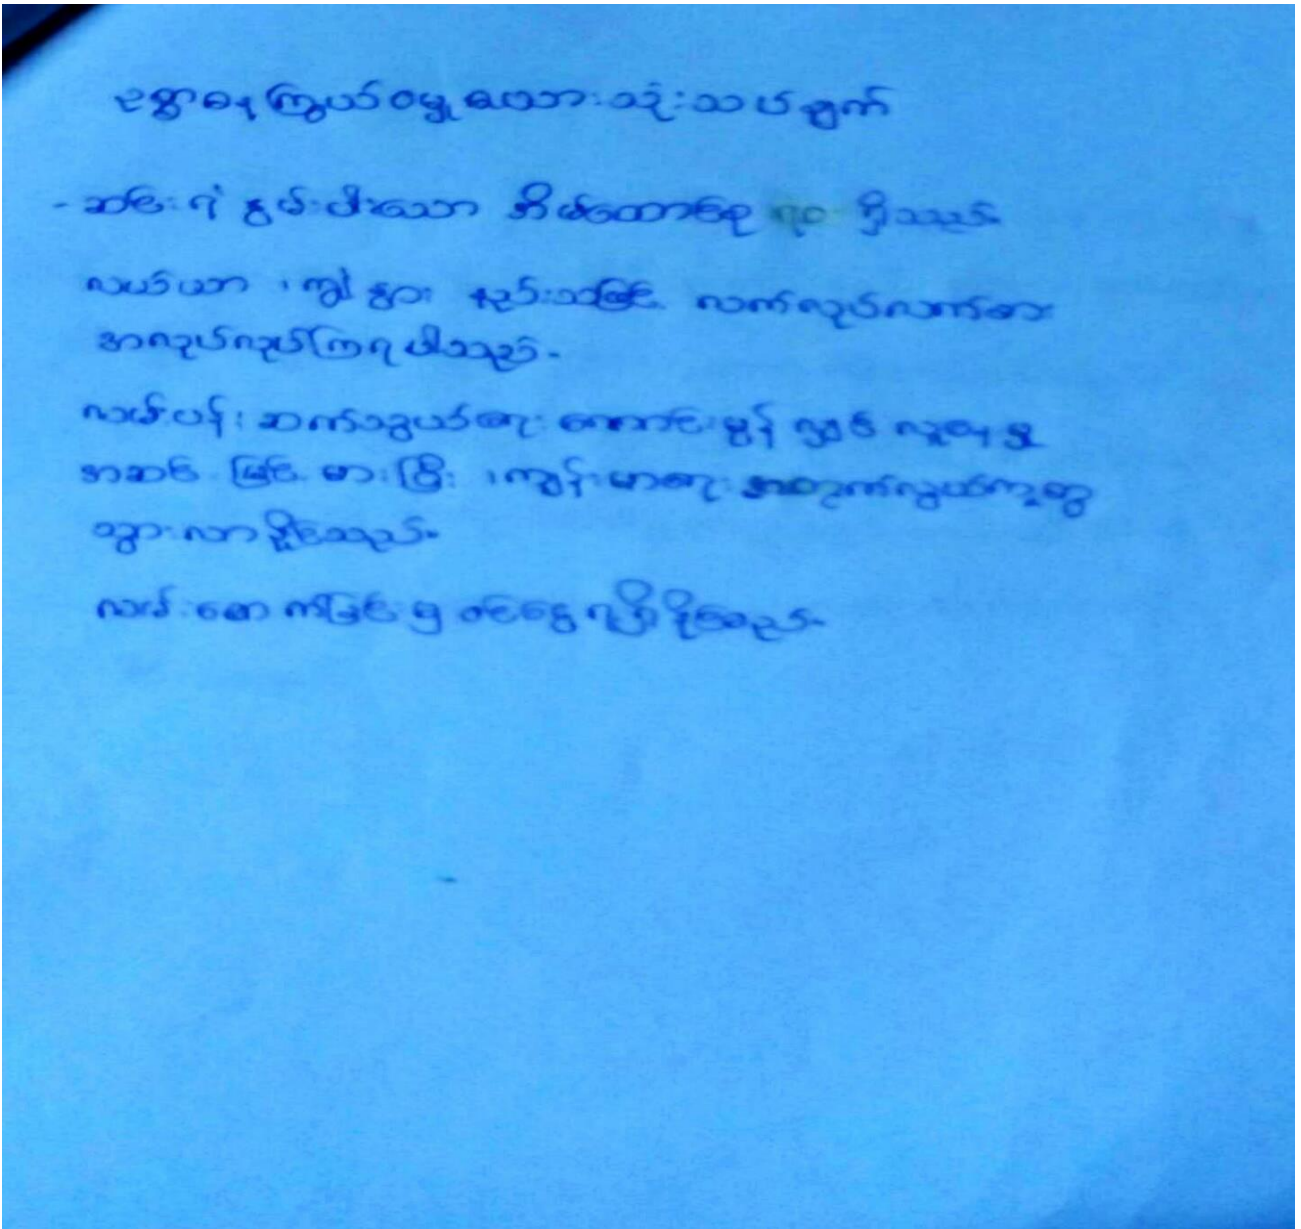 ဥစ္စာဓနကြွယ်ဝမှုဝေသားသုံးသပ်ချက်
- ဆင်းရဲ နွမ်းပါးသော အိမ်ထောင်စု ၇၀ ရှိသည်။
လယ်ယာ ၊ ကျွဲ နွား နည်းသဖြင့် လက်လုပ်လက်စား
အလုပ်လုပ်ကြရပါသည်။
လမ်းပန်း ဆက်သွယ်ရေး ကောင်းမွန် လျှင် လူနေမှု
အဆင့် မြင့် မားပြီး ၊ ကျန်းမာရေး အတွက်လွယ်ကူစွာ
သွားလာနိုင်သည်။
လမ်းဖောက်ခြင်းမှ ဝင်ငွေရရှိနိုင်သည်။